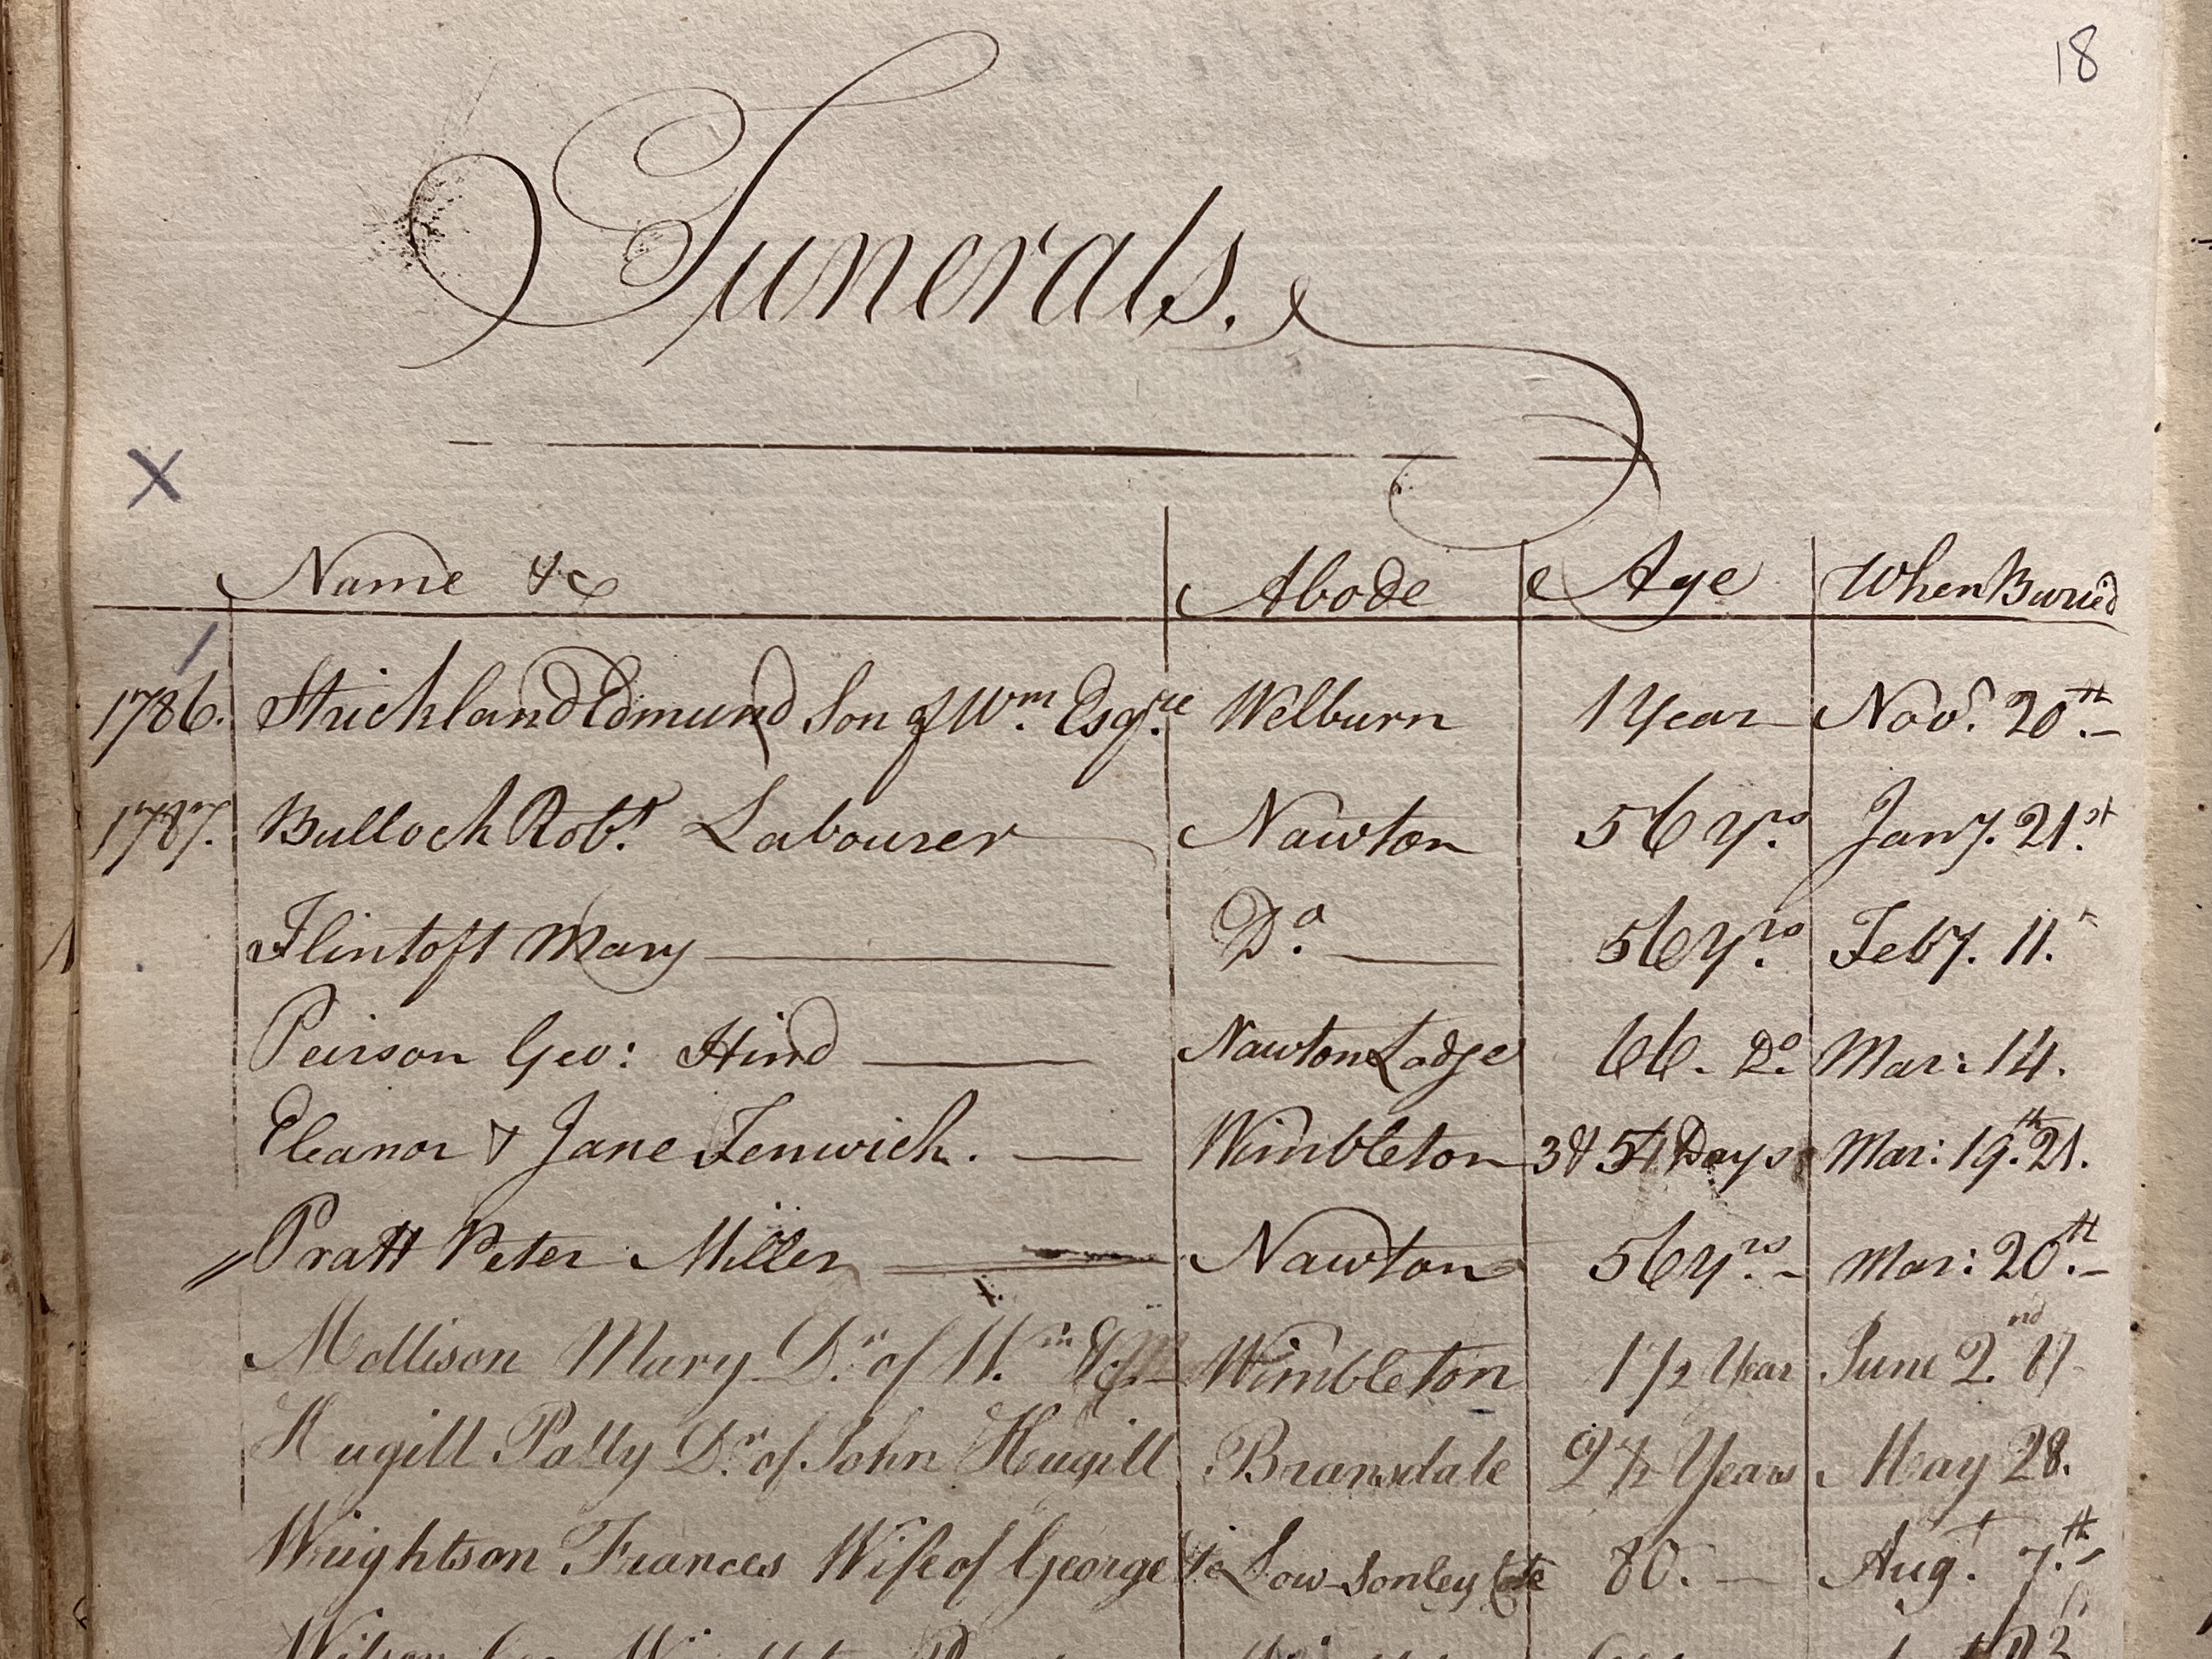 18
Funerals.
X
Name &c Abode Age When Buried
1786. Strickland Edmund Son of Wm. Esqre. Welburn 1 Year Novr. 20th.
1787. Bulloch Robt. Labourer Nawton 56 Yrs. Jany. 21st.
Flintoft Mary Do. 56 Yrs. Feby. 11.
Peirson Geo: Hind Nawton Lodge 66. Do. Mar: 14.
Eleanor & Jane Fenwick. Wimbleton 3 & 5 Days Mar: 19th. 21.
Pratt Peter Miller Nawton 56 Yrs. Mar: 20th.
Mollison Mary Dr. of Wm. Wimbleton 1 1/2 Year June 2nd.
Hugill Patty Dr. of John Hugill Bransdale 2 1/2 Years May 28.
Wrightson Frances Wife of George Low Sonley Cote 80. Augt. 7th.
Wilson